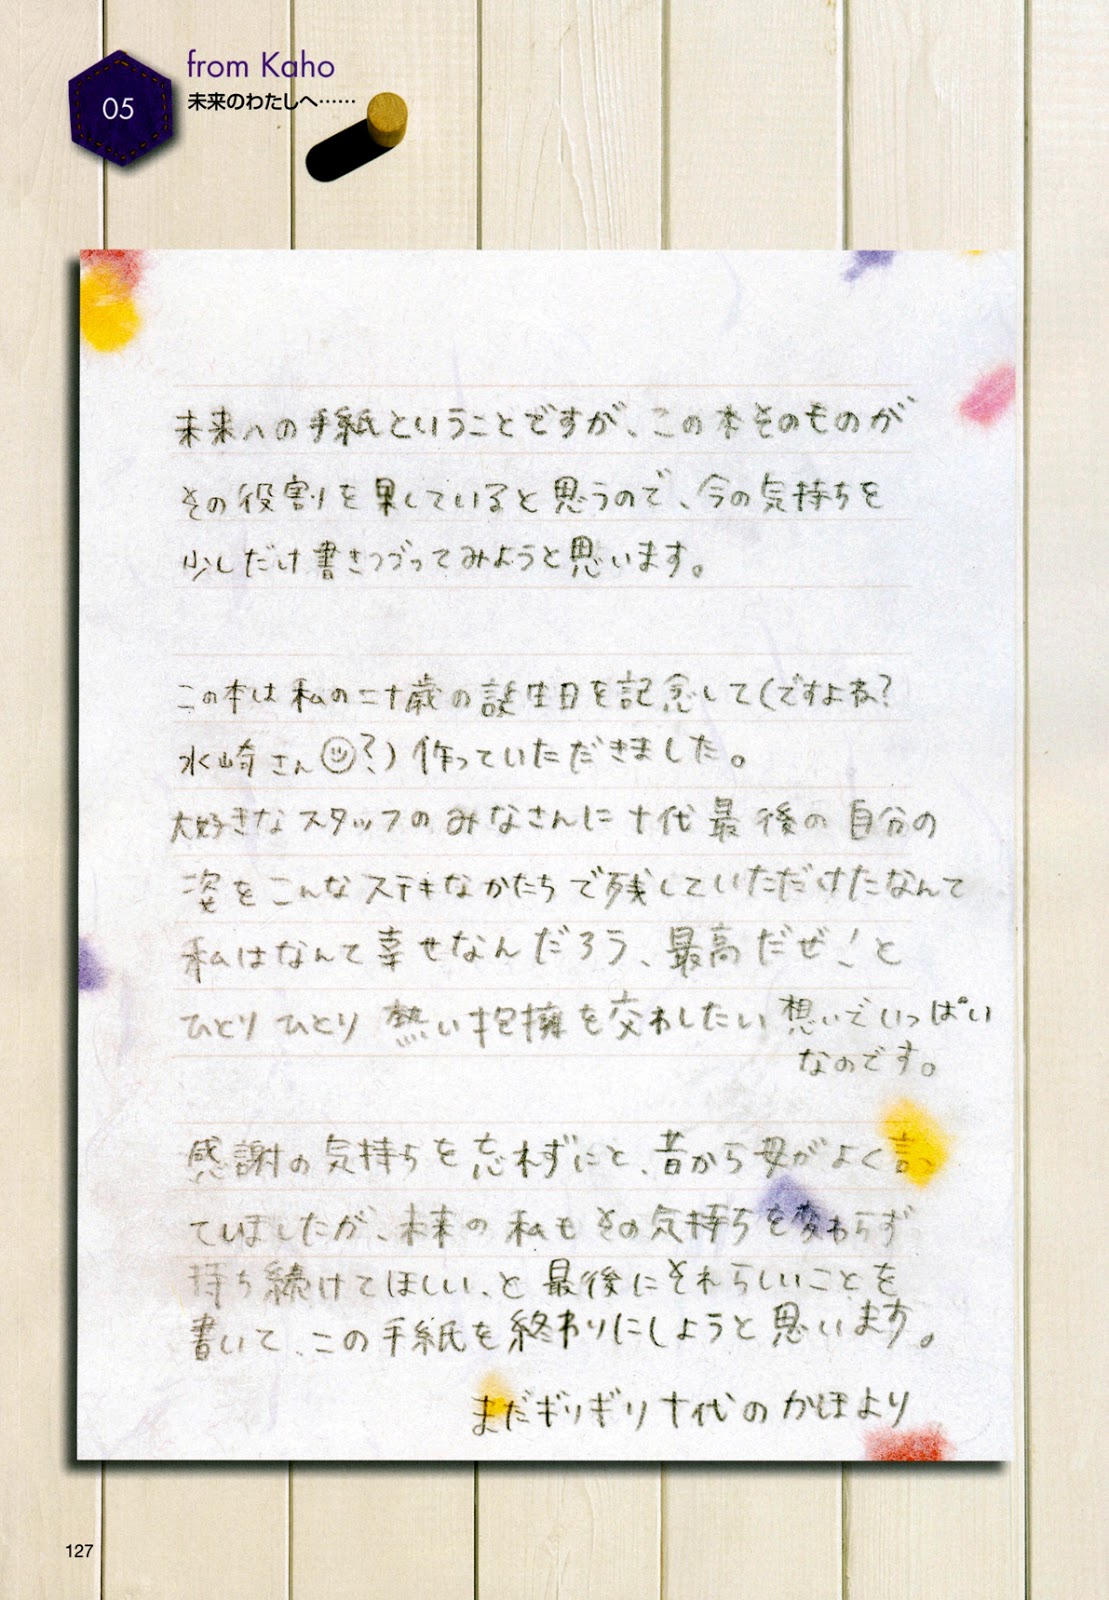 05
from Kaho
未来のわたしへ……
未来への手紙ということですが、この本そのものが
その役割を果しているると思うので、今の気持ちを
少しだけ書きつづってみようと思います。
この本は私の二十歳の誕生日を記念して(ですよね?
水崎さん?)作っていただきました。
大好きなスタッフのみなさんに十代最後の自分の
姿をこんなステキなかたちで残していただけたなんて
私はなんて幸せなんだろう、最高だぜ!と
ひとりひとり熱い抱擁を交わしたい想いでいっぱい
なのです。
感謝の気持ちを忘れずにと、昔から母がよく言っ
ていましたが、未来の私もその気持ちを変わらず
持ち続けてほしい、と最後にそれらしいことを
書いて、この手紙を終わりにしようと思います。
まだギリギリ十代のかほより
127